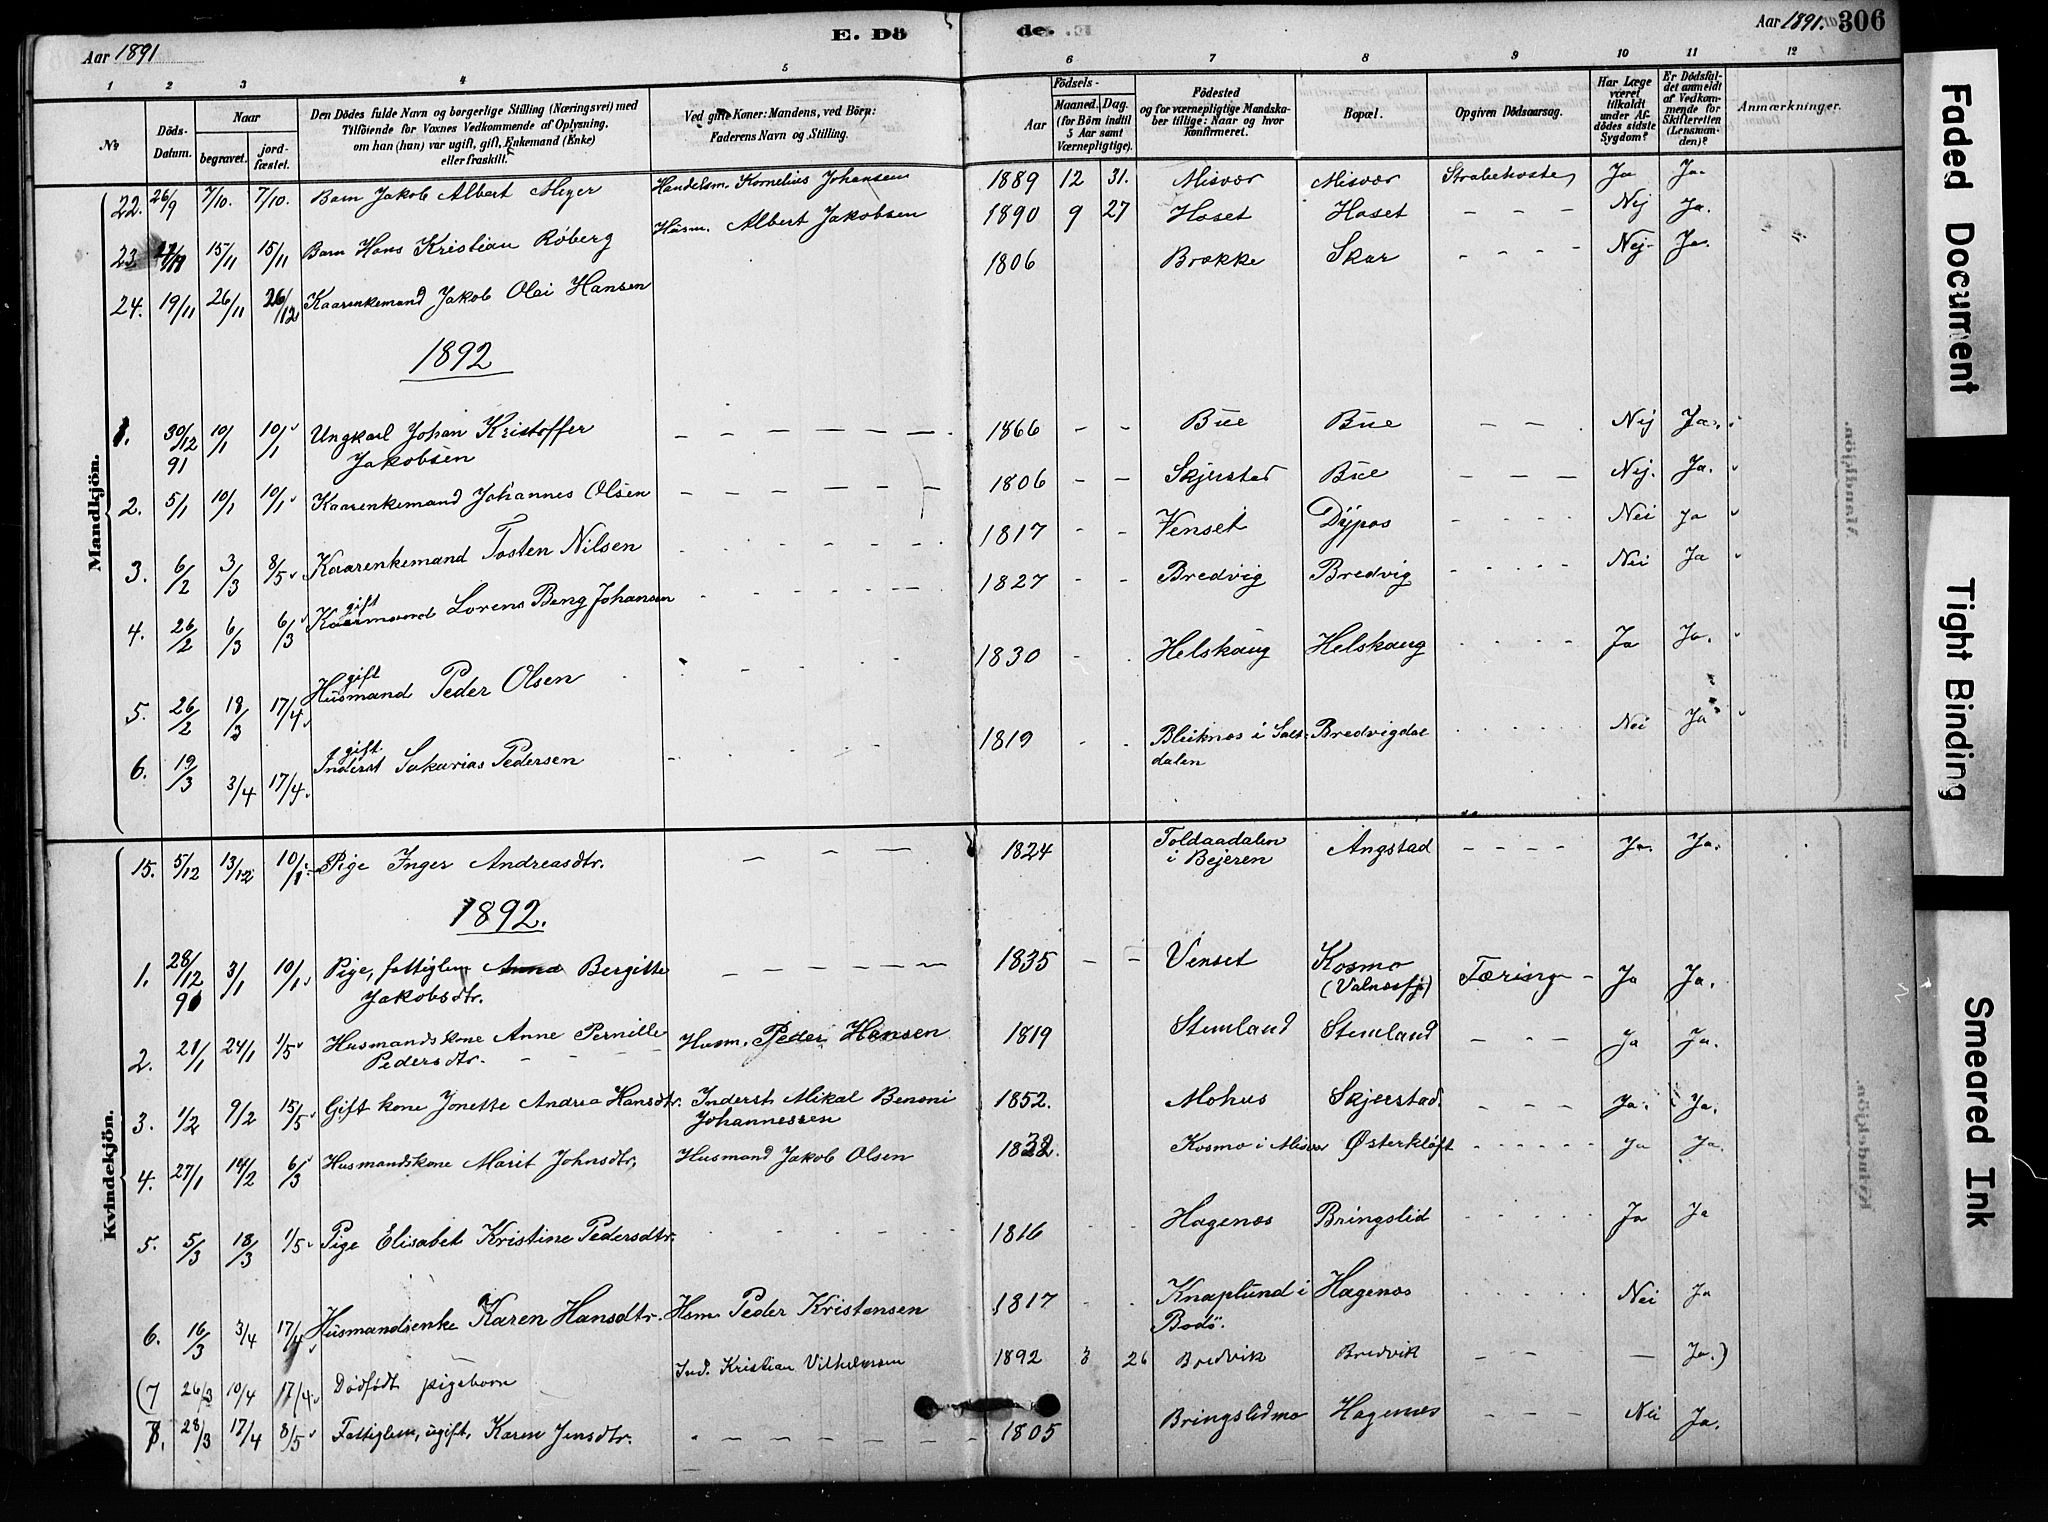 Aar 1891
E. Dö
de.
Aar 1891. 306
1 2 3 4 5 6 7 8 9 10 11 12
No
Döds-Datum.
Naar
begravet.
jord-fæstet.
Den Dödes fulde Navn og borgerlige Stilling (Næringsvei) med
Tilföiende for Voxnes Vedkommende af Oplysning,
om han (hun) var ugift, gift, Enkemand (Enke)
eller fraskilt.
Ved gifte Koner: Mandens, ved Börn:
Faderens Navn og Stilling.
Aar
Födsels-
Maaned. Dag.
(for Börn indtil
5 Aar samt
Værnepligtige).
Födested
og for værnepligtige Mandska-
ber tillige: Naar og hvor
konfirmeret.
Bopæl.
Opgiven Dödsaarsag.
Har Læge
været
tilkaldt
under Af-
dödes sidste
Sygdom?
Er Dödsfal-
det anmeldt
af Vedkom-
mende for
Skifteretten
(Lensman-
den)?
Anmærkninger.
Mandkjön.
22. 26/9 7/10. 7/10. Barn Jakob Albert Meyer Handelsm. Kornelius Johansen 1889 12 31. Misvær Misvær Strubehoste Ja Ja.
23 15/11 15/11 Barn Hans Kristian Röberg Husm. Albert Jakobsen 1890 9 27 Hoset Hoset - - - Nej Ja.
24. 19/11 26/11 26/12 Kaarenkemand Jakob Olai Hansen 1806 Brække Skar - - - - Nej- Ja.
1892
1. 30/12 91 10/1 10/1 Ungkarl Johan Kristoffer - - - - - - 1866 - - Bue Bue - - - Nej Ja.
Jakobsen
2. 5/1 10/1 10/1 Kaarenkemand Johannes Olsen - - - - - - 1806 - - Skjerstad Bue - - - - Nej. Ja.
3. 6/2 3/3 8/5 Kaarenkemand Tosten Nilsen - - - - - - 1817 - - Venset Dypos - - - - Nei Ja
4. 26/2 6/3 6/3 gift Kaarmand Lorens Beng Johansen - - - - - - 1827 - - Bredvig Bredvig - - - - - Nei Ja
5. 26/2 18/3 17/4 gift Husmand Peder Olsen - - - - 1830 - - Helskaug Helskaug - - - - Ja Ja.
6. 19/3 3/4 17/4 gift Inderst Sakarias Pedersen - - - - - 1819 - - Bleiknes i Salt- Bredvigdal - - - - Nei Ja
dalen
Kvindekjön.
15. 5/12 13/12 10/1 Pige Inger Andreasdtr. - - - 1824 Toldaadalen Angstad - - - - Ja. Ja.
i Bejeren
1892.
1. 28/12 91 3/1 10/1 Pige, fattiglem Anna Bergitte - - - - - - 1835 - - Venset Kosmo Tæring - Ja Ja.
Jakobsdtr. (Valnesfj)
2. 21/1 24/1 1/5 Husmandskone Anne Pernille Husm. Peder Hansen 1819 Stemland Stemland - - - Ja Ja.
Pedersdtr. - - - -
3. 1/2 9/2 15/5 Gift kone Jonette Andrea Hansdtr. Inderst Mikal Benoni 1852. Mohus Skjerstad. - - - - Ja. Ja.
Johannessen
4. 27/1 14/2 6/3 Husmandskone Marit Johnsdtr, Husmand Jakob Olsen 1832. Kosmo i Misvær Østerkløft - - - - - - Ja Ja.
5. 5/3 18/3 1/5 Pige Elisabet Kristine Pedersdtr. - - - - - 1816 - - Hagenes Bringslid - - - - - Ja Ja
6. 16/3 3/4 17/4 Husmandsenke Karen Hansdtr. Hsm Peder Kristensen 1817 - - Knaplund i Hagenes - - - - - Nei Ja
Bodö.
(7 26/3 10/4 17/4 Dödfödt pigebarn Ind. Kristian Vilhelmsen 1892 3 26 Bredvik Bredvik - - - - Ja.)
8. 28/3 17/4 8/5 Fattiglem, ugift, Karen Jensdtr. - - - - - - - 1805 Bringslidmo Hagenes - - - - Nei Ja.
Faded Document
Tight Binding
Smeared Ink